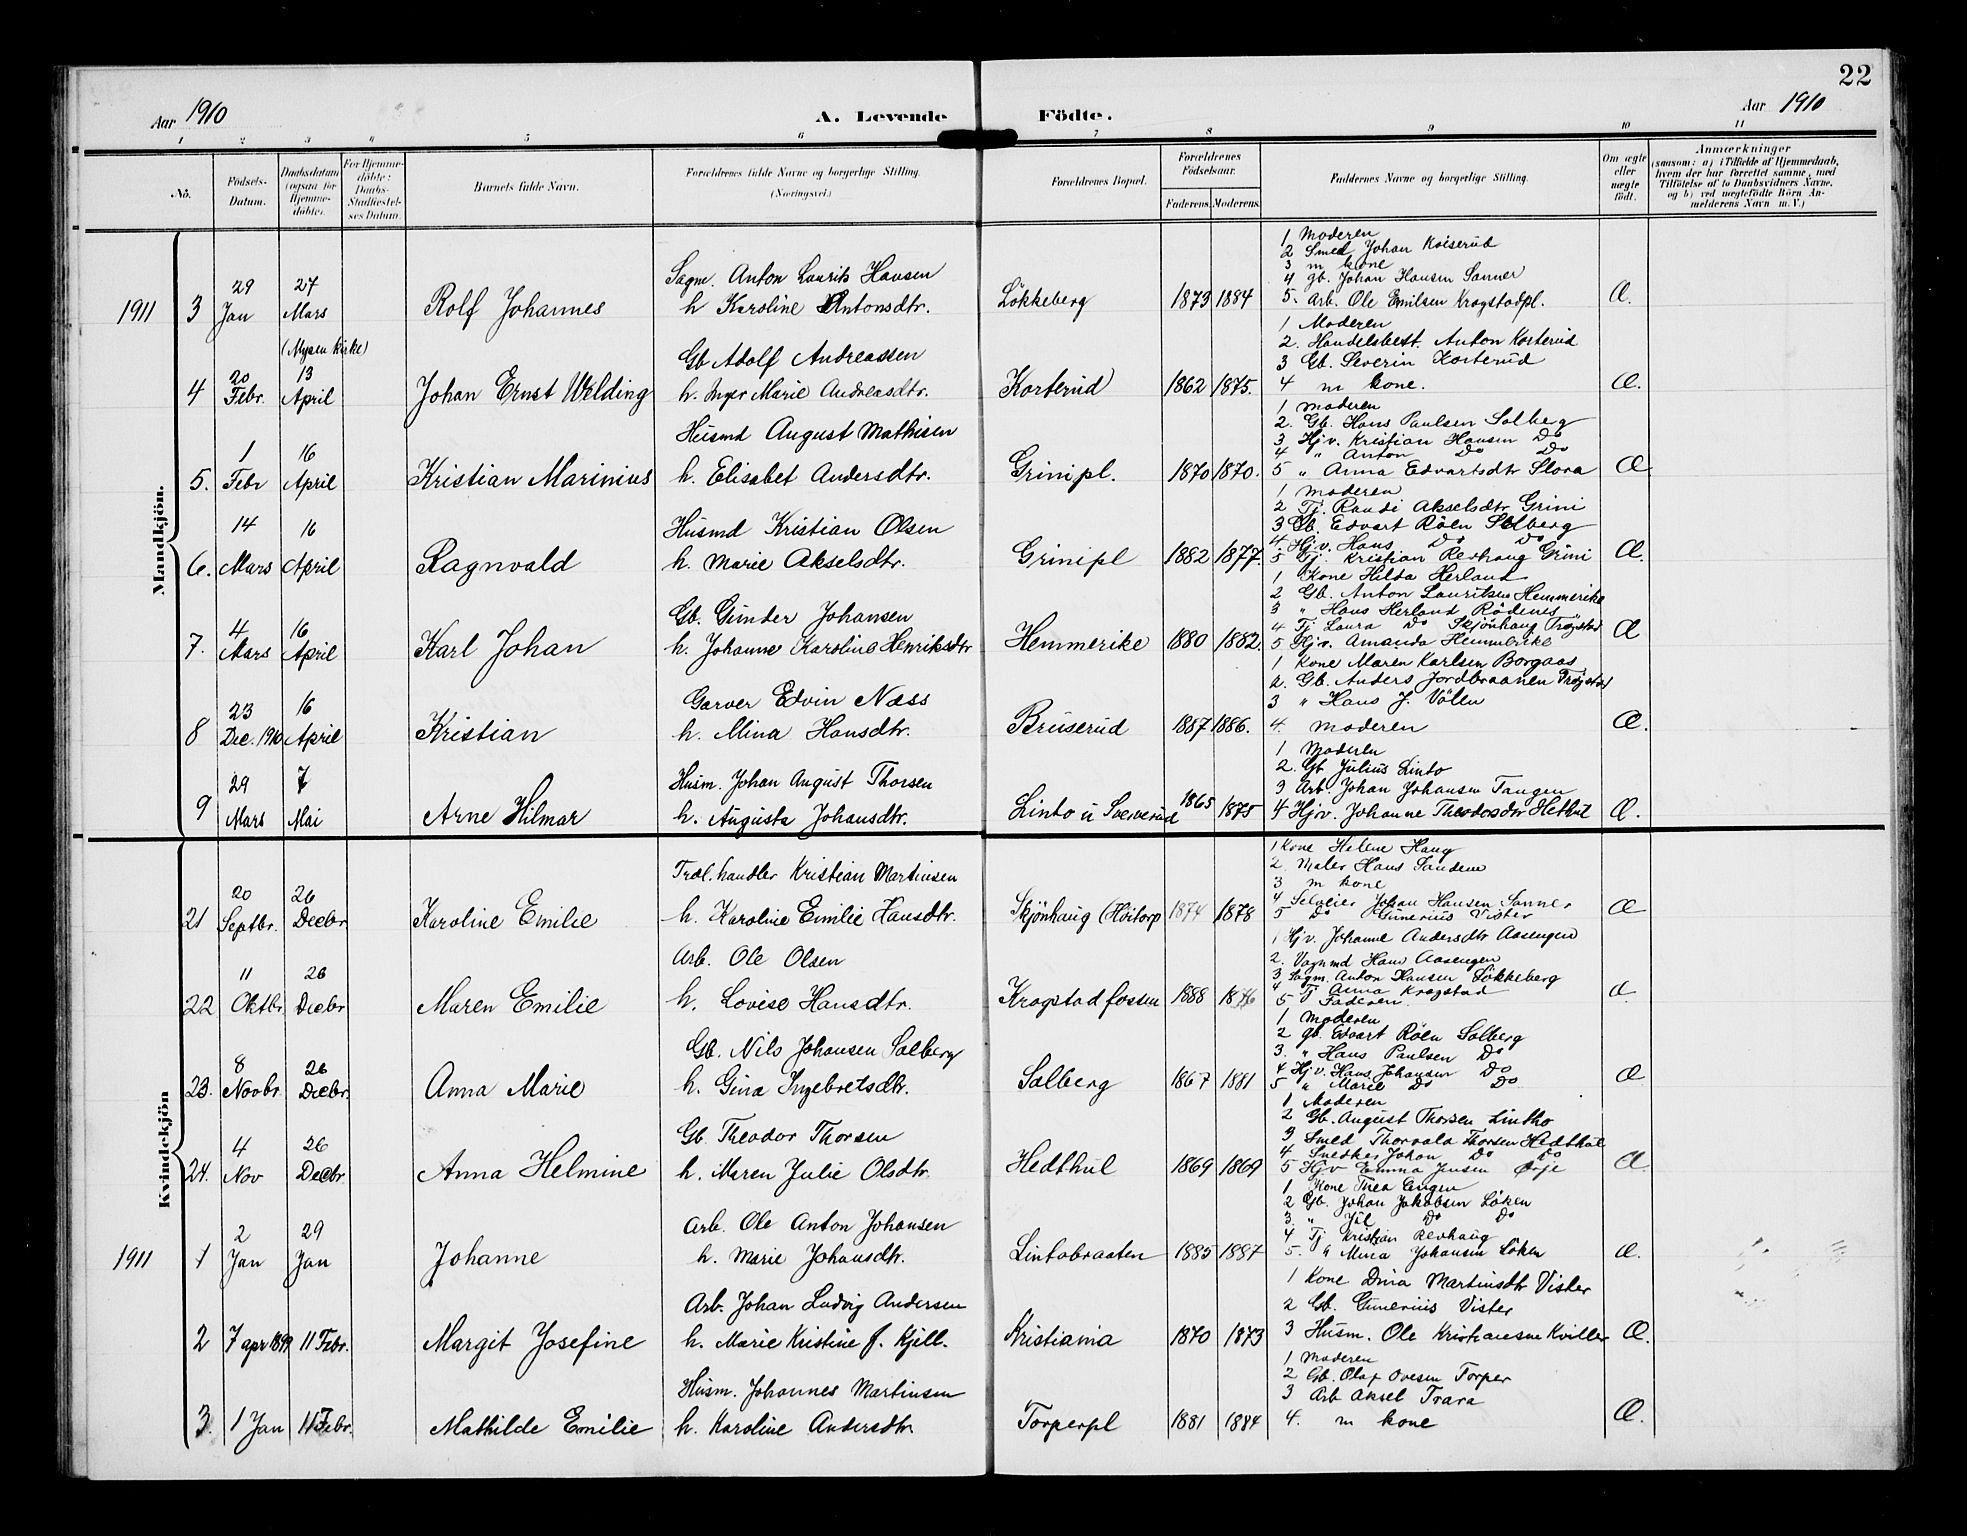 22
Aar 1910
A. Levende Födte.
Aar 1910
1 2 3 4 5 6 7 8 9 10 11
No.
Födsels-Datum.
Daabsdatum (ogsaa for Hjemme-döbte).
For Hjemme-döbte: Daabs-Stadfæstel-ses Datum.
Barnets fulde Navn.
Forældrenes fulde Navne og borgerlige Stilling. (Næringsvei.)
Forældrenes Bopæl.
Forældrenes Födselsaar.
Faderens. Moderens.
Faddernes Navne og borgerlige Stilling.
Om ægte eller uægte födt.
Anmærkninger
(saasom: a) i Tilfælde af Hjemmedaab, hvem der har forrettet samme, med Tilföielse af to Daabsvidners Navne, og b) ved uægtefödte Börn Anmelderens Navn m. V.)
Mandkjön.
1911 3 29 Jan 27 Mars (Mysen Kirke) Rolf Johannes
Sagm. Anton Laurits Hansen
h Karoline Antonsdtr.
Lökkeberg 1873 1884
1 Moderen
2 Smed Johan Koiserud
3 m kone
4 gb. Johan Hansen Sanner
5. Arb. Ole Emilsen Kragstadpl.
Æ.
4 20 Febr. 13 April Johan Ernst Welding
Gb Adolf Andreassen
h. Inger Marie Andreasdtr.
Korterud 1862 1875.
1 Moderen
2. Handelsbest. Anton Korterud
3 Gb. Severin Korterud
4 m kone.
Æ.
5. 1 Febr 16 April Kristian Marinius
Husmd August Mathisen
h. Elisabet Andersdtr.
Grinipl. 1870 1870.
1 Moderen
2. Gb. Hans Paulsen Solberg
3 Hjv. Kristian Hansen Do
4 " Anton Do Do
5 " Anna Edvartsdtr Slora
Æ
6. 14 Mars 16 April Ragnvald
Husmd Kristian Olsen
h. Marie Akselsdtr.
Grinipl 1882 1877.
1 Moderen
2 Tj. Randi Akselsdtr Grini
3 Gb. Edvart Röen Solberg
4. Hjv. Hans Do Do
5 Tj. Kristian Revhaug Grini
Æ.
7. 4 Mars 16 April Karl Johan
Gb. Gunder Johansen
h. Johanne Karoline Henriksdtr
Hemmerike 1880 1882.
1 Kone Hilda Herland
2 Gb. Anton Lauritsen Hemmerike
3 " Hans Herland Rödenes
4 Tj Laura Do Skjönhaug Trøgstad
5 Hjv. Amanda Hemmerike
Æ
8 23 Dec. 1910 16 April Kristian
Garver Edvin Næss
h. Mina Hansdtr.
Bruserud 1887 1886.
1 Kone Maren Karlsen Borgaas
2. Gb. Anders Jordbraanen Trøgstad
3 " Hans J. Völen
4. Moderen
Æ.
9 29 Mars 7 Mai Arne Hilmar
Husm. Johan August Thorsen
h. Augusta Johansdtr.
Linto u Sververud 1865 1875
1 Moderen
2. Gb Julius Linto
3 Arb. Johan Johansen Tangen
4 Hjv. Johanne Theodorsdtr Hethul
Æ.
Kvindekjön
21 20 Septbr. 26 Decbr Karoline Emilie
Træl.handler Kristian Martinsen
h. Karoline Emilie Hansdtr.
Skjönhaug (Höitorp 1874 1878
1 Kone Helene Haug
2 Maler Hans Sandem
3 m kone
4 Selveier Johan Hansen Sanner
5 Do Gunerius Vister
Æ
22 11 Oktbr 26 Decbr Maren Emilie
Arb. Ole Olsen
h. Lovise Hansdtr.
Kragstadfossen 1888
1 Hjv. Johanne Andersdtr Aasengen
2. Vognmd Hans Aasengen
3 Sagm. Anton Hansen Lökkeberg
4 Tj Anna Kragstad
5 Faderen
Æ.
23. 8 Novbr. 26 Decbr. Anna Marie
Gb. Nils Johansen Solberg
h. Gina Ingebretsdtr.
Solberg 1867 1881
1 Moderen
2 gb. Edvart Röen Solberg
3. " Hans Paulsen Do
4 Hjv. Hans Johansen Do
5 " Marie Do Do
Æ
24. 4 Nov 26 Decbr. Anna Helmine
Gb. Theodor Thorsen
h. Maren Julie Olsdtr.
Hedthul 1869 1869
1 Moderen
2 Gb. August Thorsen Lintho
3 Smed Thorvald Thorsen Hedthul
4 Snedker Johan Do Do
5 Hjv Emma Jensen Ørje
Æ.
1911 1 2 Jan 29 Jan Johanne
Arb. Ole Anton Johansen
h. Marie Johansdtr.
Lintobraaten 1885 1887
1 Kone Thea Engen
2 Gb. Johan Jakobsen Löken
3. " Jul Do Do
4 Tj Kristian Revhaug
5. " Mina Johansen Löken
Æ.
2 7 apr 1899 11 Febr. Margit Josefine
Arb. Johan Ludvig Andersen
h. Marie Kristine f. Kjill.
Kristiania 1870 1873
1 Kone Dina Martinsdtr Vister
2 Gb. Gunerius Vister
3 Husm. Ole Kristiansen Kviller
Æ.
3. 1 Jan 11 Febr. Mathilde Emilie
Husm. Johannes Martinsen
h. Karoline Andersdtr
Torperpl 1881 1884
1 Moderen
2 Gb. Olaf Ovesen Torper
3 Arb Aksel Trara
4. m kone
Æ.